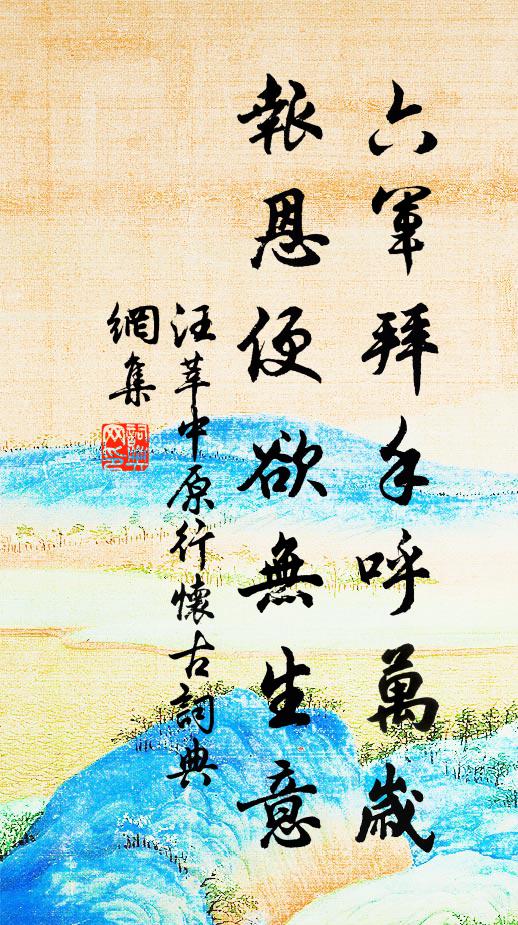 六軍拜手呼萬歲
報恩便欲無生意
汪莘中原行懷古詞典
網集